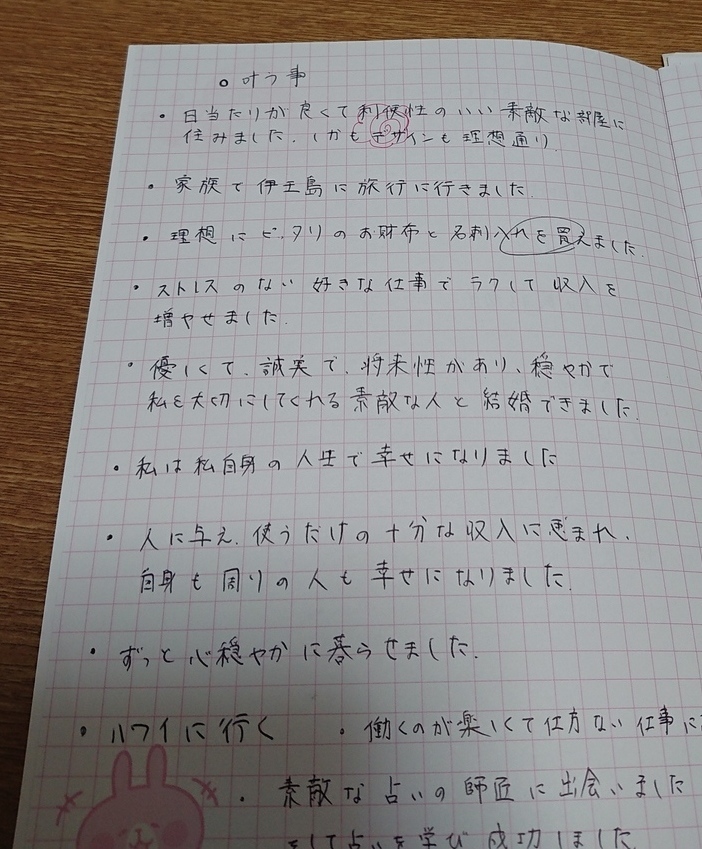 ○ 叶う事
・日当たりが良くて利便性のいい素敵な部屋に
住みました。しかもデザインも理想通り。
・家族で伊王島に旅行に行きました。
・理想にピッタリのお財布と名刺入れを買えました。
・ストレスのない好きな仕事でラクして収入を
増やせました。
・優しくて、誠実で、将来性があり、穏やかで
私を大切にしてくれる素敵な人と結婚できました。
・私は私自身の人生で幸せになりました
・人に与え、使うだけの十分な収入に恵まれ、
自身も周りの人も幸せになりました。
・ずっと心穏やかに暮らせました。
・ハワイに行く ・働くのが楽しくて仕方ない仕事に
・素敵な占いの師匠に出会いました
そして占いを学び成功しました